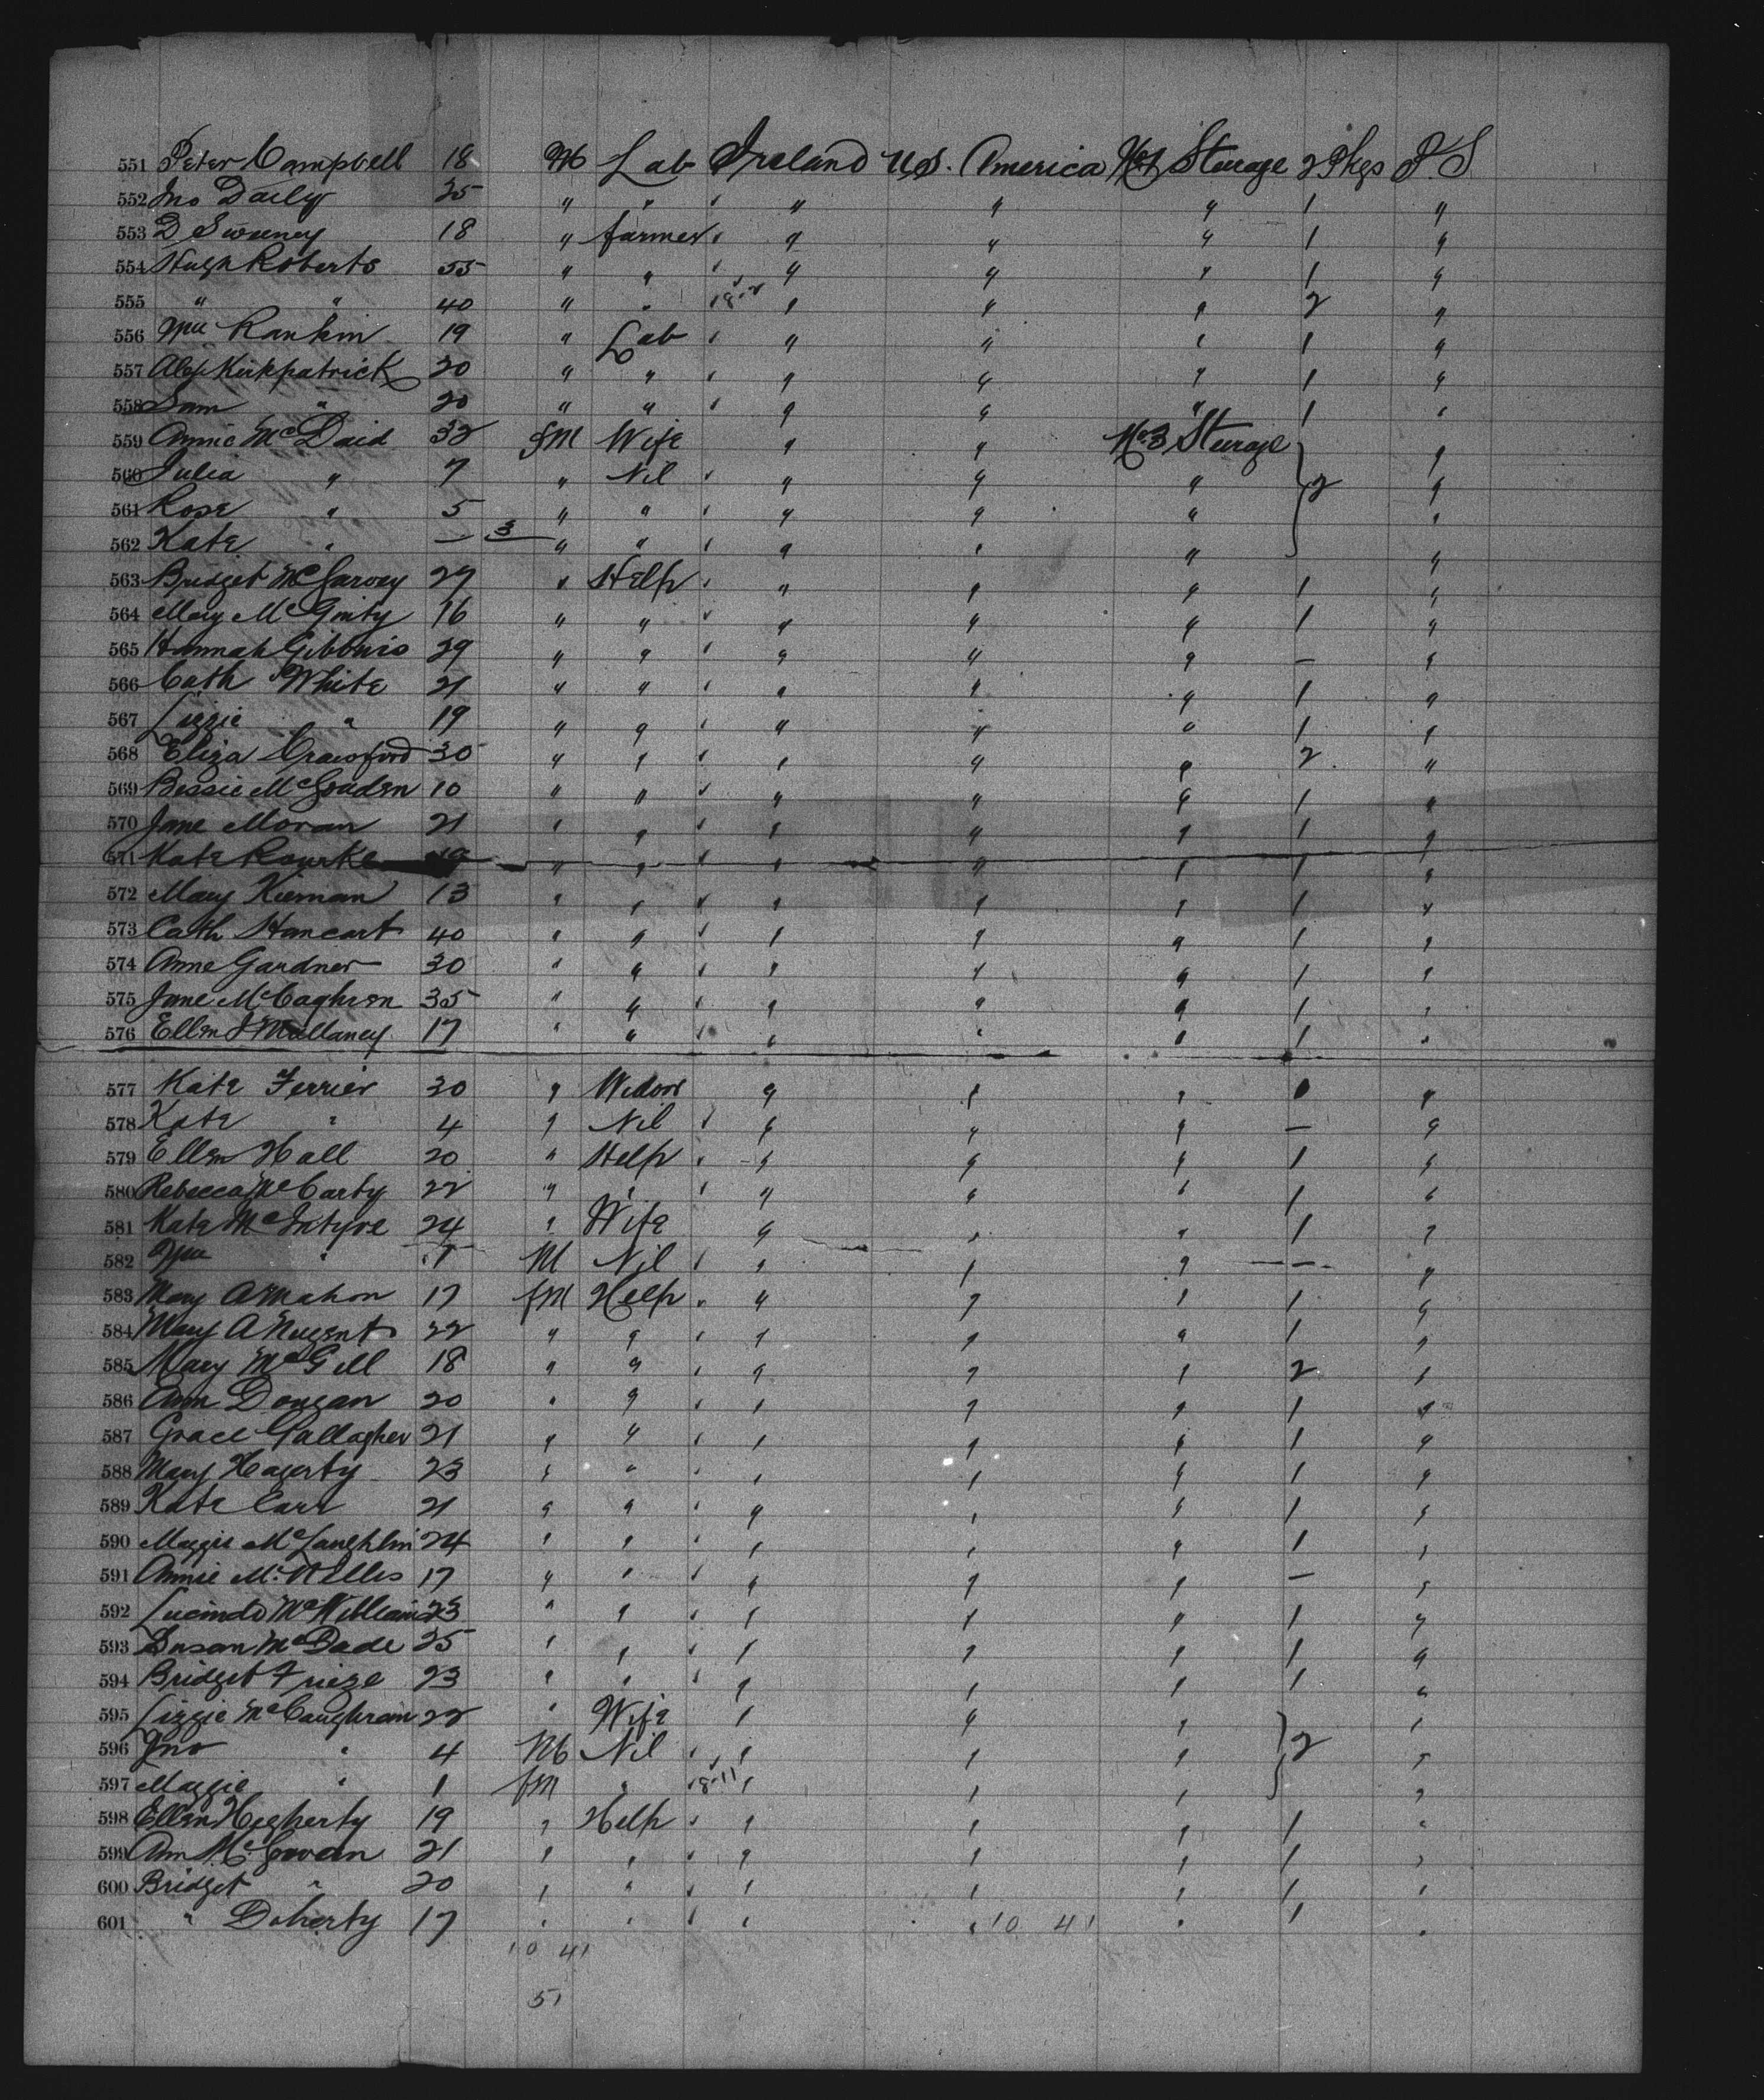 551 Peter Campbell 18 M Lab Ireland U.S. America No 1 Steerage 2 Pkgs P.S
552 Jno Daily 25 " " " " " 1 "
553 D Sweeney 18 " farmer " " " 1 "
554 Hugh Roberts 55 " " " " " 1 "
555 " " 40 " " " " " 2 "
556 Wm Rankin 19 " Lab " " " 1 "
557 Alex Kirkpatrick 20 " " " " " 1 "
558 Sam " 20 " " " " " 1 "
559 Annie McDaid 32 fM Wife " " No 3 Sterage "
560 Julia " 7 " Nil " " " 2 "
561 Rose " 5 " " " " " "
562 Kate " — 3 " " " " " "
563 Bridget McGarvey 27 " Help " " " 1 "
564 Mary McGinty 16 " " " " " 1 "
565 Hannah Gibbons 29 " " " " " — "
566 Cath White 21 " " " " " 1 "
567 Lizzie " 19 " " " " " 1 "
568 Eliza Crawford 30 " " " " " 2 "
569 Bessie 10 " " " " " 1 "
570 Jane Moran 21 " " " " " 1 "
571 Kate Rourke 19 " " " " " 1 "
572 Mary Kiernan 13 " " " " " 1 "
573 Cath Hancart 40 " " " " " 1 "
574 Anne Gardner 30 " " " " " 1 "
575 Jane McCaghren 35 " " " " " 1 "
576 Ellen J Mullaney 17 " " " " " 1 "
577 Kate Ferrier 30 " Widow " " " 1 "
578 Kate " 4 " Nil " " " — "
579 Ellen Hall 20 " Help " " " 1 "
580 Rebecca McCarty 22 " " " " " 1 "
581 Kate McIntyre 24 " Wife " " " 1 "
582 Wm " 1 M Nil " " " — "
583 Mary A Mahon 17 fM Help " " " 1 "
584 Mary A Nugent 22 " " " " " 1 "
585 Mary McGill 18 " " " " " 2 "
586 Ann Dongan 20 " " " " " 1 "
587 Grace Gallagher 21 " " " " " 1 "
588 Mary Hagerty 23 " " " " " 1 "
589 Kate Carr 21 " " " " " 1 "
590 Maggie McLaughlin 24 " " " " " 1 "
591 Annie McNellis 17 " " " " " — "
592 Lucinda McWilliam 23 " " " " " 1 "
593 Susan McDade 25 " " " " " 1 "
594 Bridget Frieze 23 " " " " " 1 "
595 Lizzie McCaughran 22 " Wife " " " "
596 Jno " 4 M Nil " " " 2 "
597 Maggie " 1 fM " " " " "
598 Ellen Hegherty 19 " Help " " " 1 "
599 Ann McGowan 21 " " " " " 1 "
600 Bridget " 20 " " " " " 1 "
601 " Doherty 17 " " " " 10 41 " 1 "
10 41
51